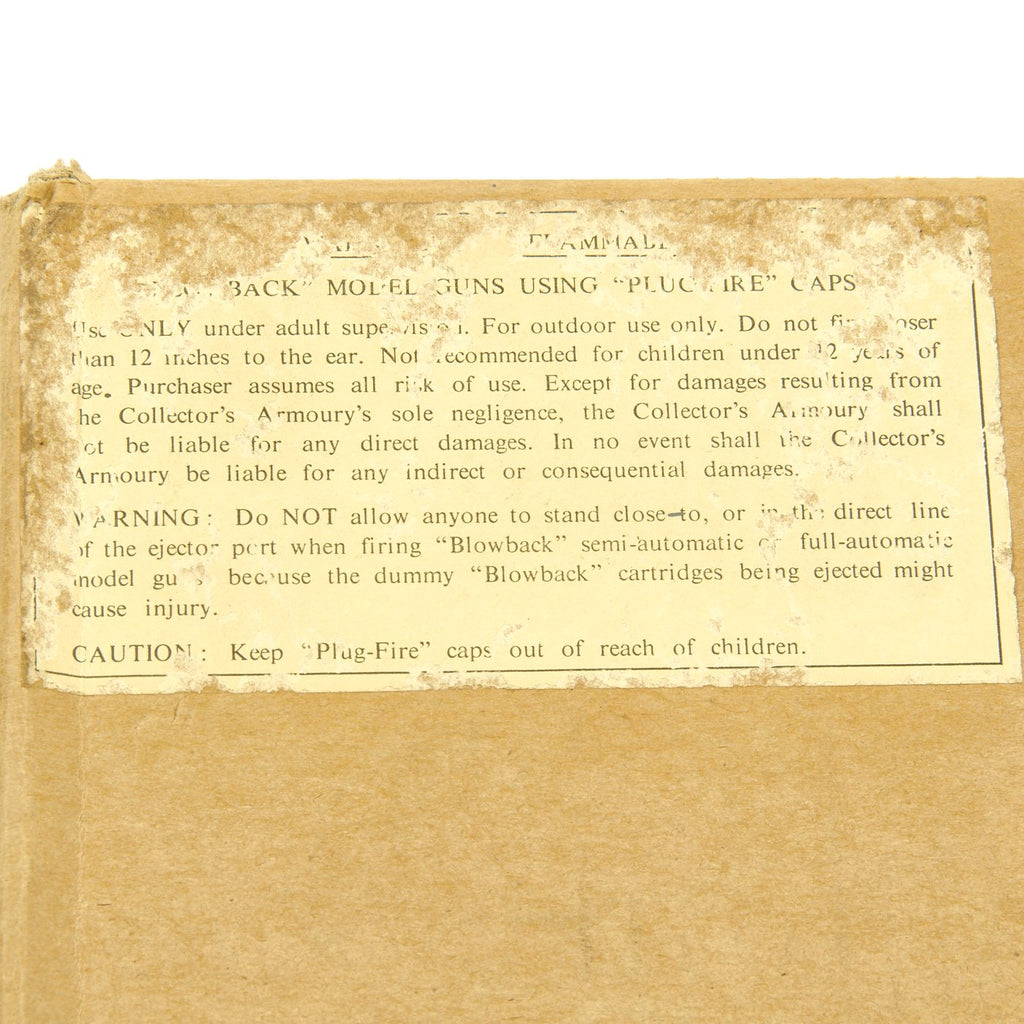 FLAMMABLE
"BLOWBACK" MODEL GUNS USING "PLUG FIRE" CAPS
Use ONLY under adult supervision. For outdoor use only. Do not fire closer
than 12 inches to the ear. Not recommended for children under 12 years of
age. Purchaser assumes all risk of use. Except for damages resulting from
the Collector's Armoury's sole negligence, the Collector's Armoury shall
not be liable for any direct damages. In no event shall the Collector's
Armoury be liable for any indirect or consequential damages.
WARNING: Do NOT allow anyone to stand close to, or in the direct line
of the ejector port when firing "Blowback" semi-automatic or full-automatic
model guns because the dummy "Blowback" cartridges being ejected might
cause injury.
CAUTION: Keep "Plug-Fire" caps out of reach of children.